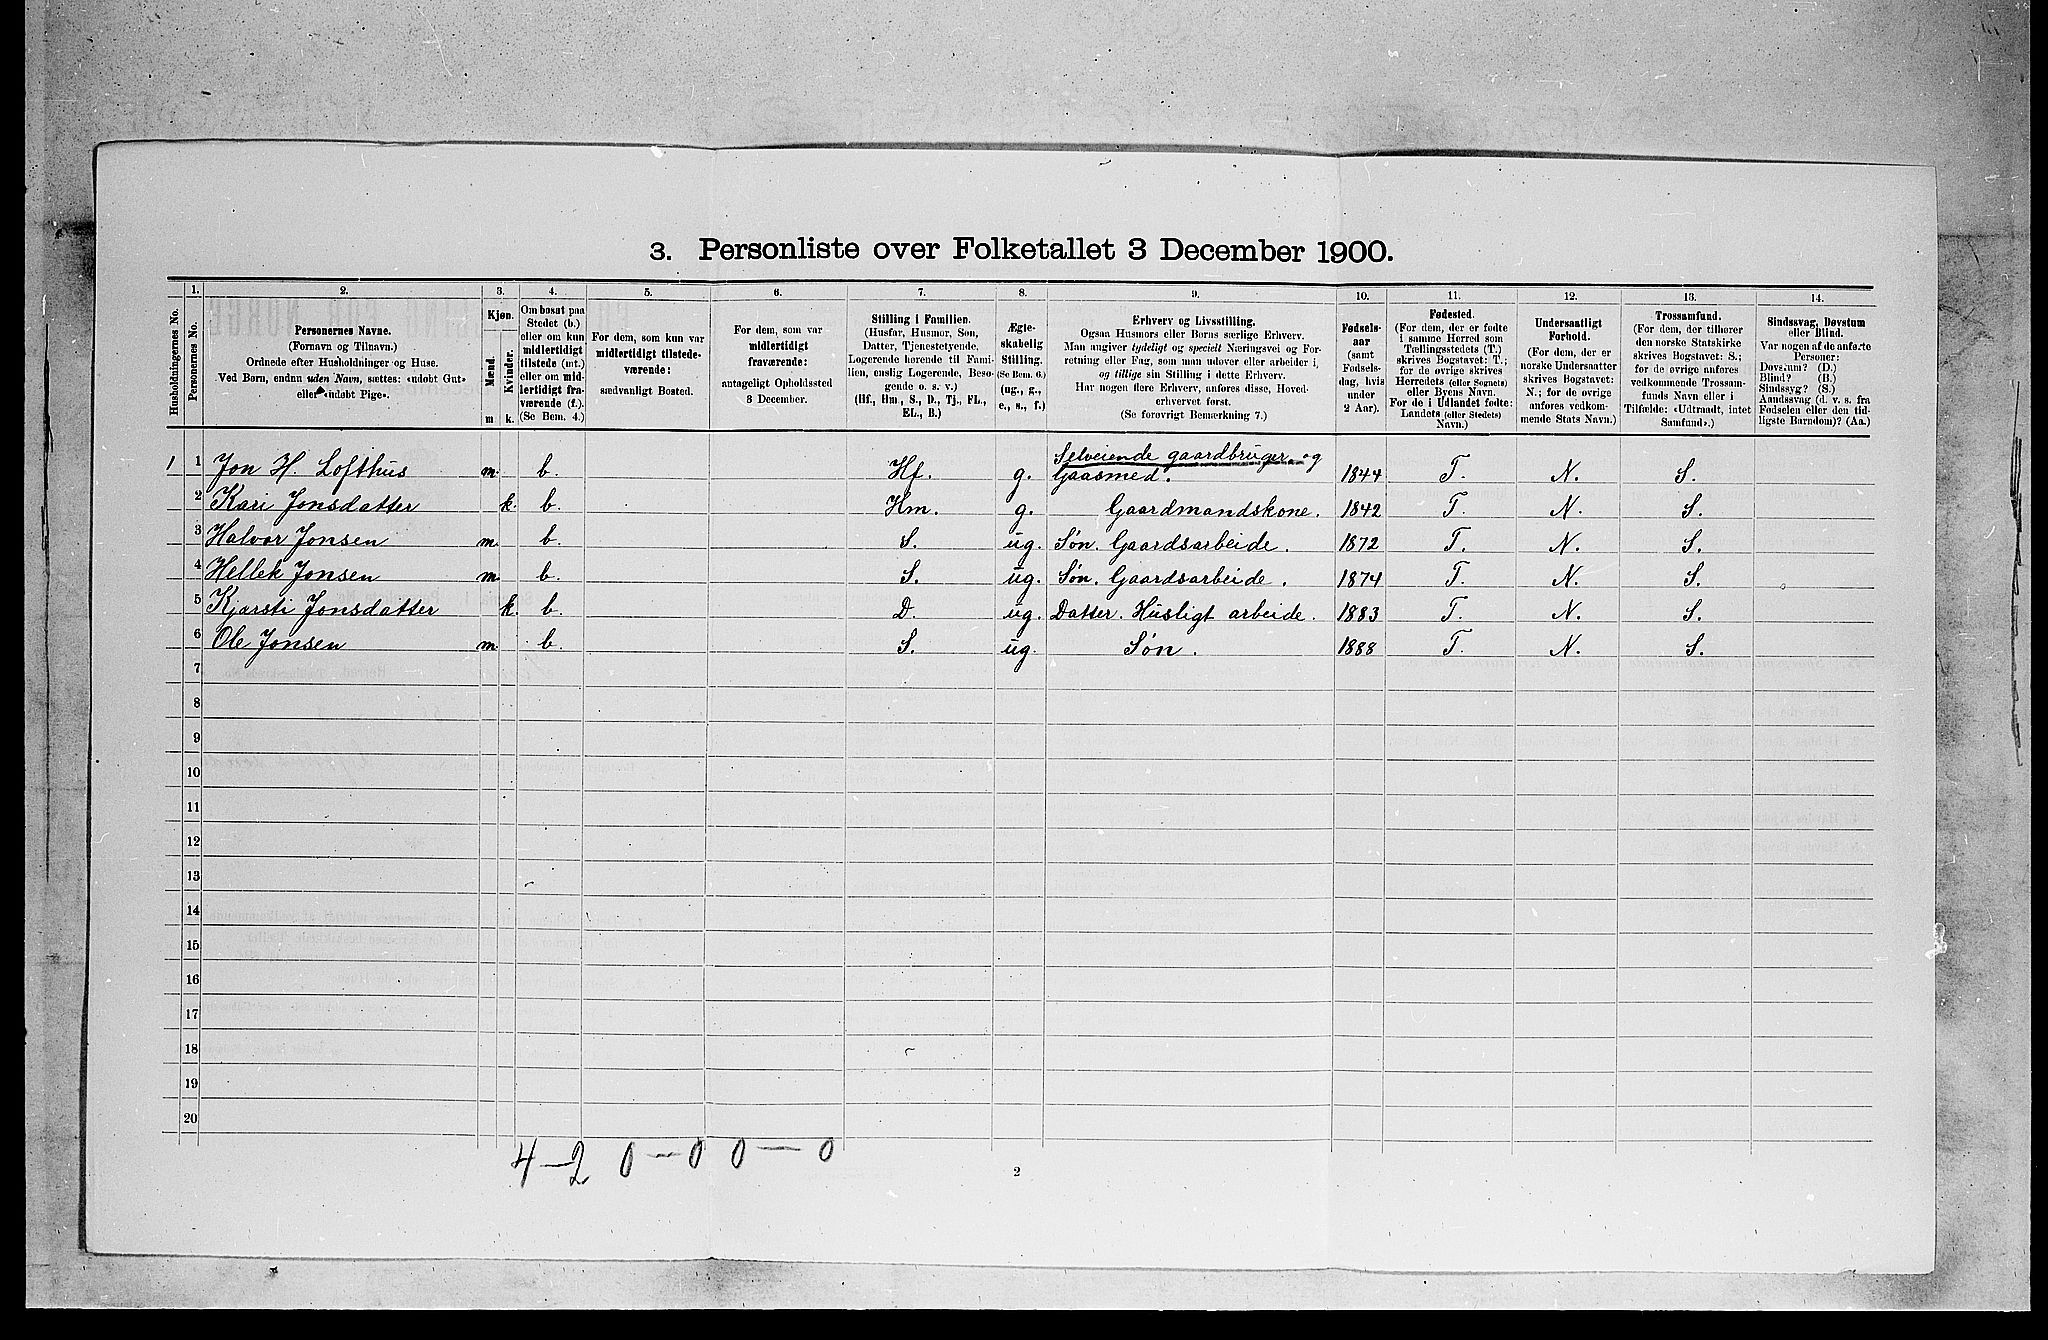 3. Personliste over Folketallet 3 December 1900.
Husholdningernes No.
1.
Personernes No.
2.
Personernes Navne.
(Fornavn og Tilnavn.)
Ordnede efter Husholdninger og Huse.
Ved Børn, endnu uden Navn, sættes: «udøbt Gut»
eller «udøbt Pige».
3.
Kjøn.
Mænd.
Kvinder.
m
k.
4.
Om bosat paa
Stedet (b.)
eller om kun
midlertidigt
tilstede (mt.)
eller om mid-
lertidigt fra-
værende (f.).
(Se Bem. 4.)
5.
For dem, som kun var
midlertidigt tilstede-
værende:
sædvanligt Bosted.
6.
For dem, som var
midlertidigt
fraværende:
antageligt Opholdssted
3 December.
7.
Stilling i Familien.
(Husfar, Husmor, Søn,
Datter, Tjenestetyende,
Logerende hørende til Fami-
lien, enslig Logerende, Besø-
gende o. s. v.)
(Hf., Hm., S., D., Tj., FL.,
EL., B.)
8.
Ægte-
skabelig
Stilling.
(Se Bem. 6.)
(ug., g.,
e., s., f.)
9.
Erhverv og Livsstilling.
Ogsaa Husmors eller Børns særlige Erhverv.
Man angiver tydeligt og specielt Næringsvei og For-
retning eller Fag, som man udøver eller arbeider i,
og tillige sin Stilling i dette Erhverv.
Har nogen flere Erhverv, anføres disse, Hoved-
erhvervet først.
(Se forøvrigt Bemærkning 7.)
10.
Fødsels-
aar
(samt
Fødsels-
dag, hvis
under
2 Aar).
11.
Fødested.
(For dem, der er fødte
i samme Herred som
Tællingsstedets (T.)
skrives Bogstavet: T.;
for de øvrige skrives
Herredets (eller Sognets)
eller Byens Navn.
For de i Udlandet fødte:
Landets (eller Stedets)
Navn.)
12.
Undersaatligt
Forhold.
(For dem, der er
norske Undersaatter
skrives Bogstavet:
N.; for de øvrige
anføres vedkom-
mende Stats Navn.)
13.
Trossamfund.
(For dem, der tilhører
den norske Statskirke
skrives Bogstavet: S.;
for de øvrige anføres
vedkommende Trossam-
funds Navn eller i
Tilfælde: «Udtraadt, intet
Samfund».)
14.
Sindssvag, Døvstum
eller Blind.
Var nogen af de anførte
Personer:
Døvstum? (D.)
Blind? (B.)
Sindssyg? (S.)
Aandssvag (d. v. s. fra
Fødselen eller den tid-
ligste Barndom)? (Aa.)
1 1 Jon H. Lofthus m. b. Hf. g. Selveiende gaardbruger og
Gaasmed. 1844 T. N. S.
2 Kari Jonsdatter k. b. Hm. g. Gaardmandskone. 1842 T. N. S.
3 Halvor Jonsen m. b. S. ug. Søn. Gaardsarbeide. 1872 T. N. S.
4 Hellek Jonsen m. b. S. ug. Søn. Gaardsarbeide. 1874 T. N. S.
5 Kjersti Jonsdatter k. b. D. ug. Datter. Husligt arbeide. 1883 T. N. S.
6 Ole Jonsen m. b. S. ug. Søn. 1888 T. N. S.
7
8
9
10
11
12
13
14
15
16
17
18
19
20
4-2 0-0 0-0
2